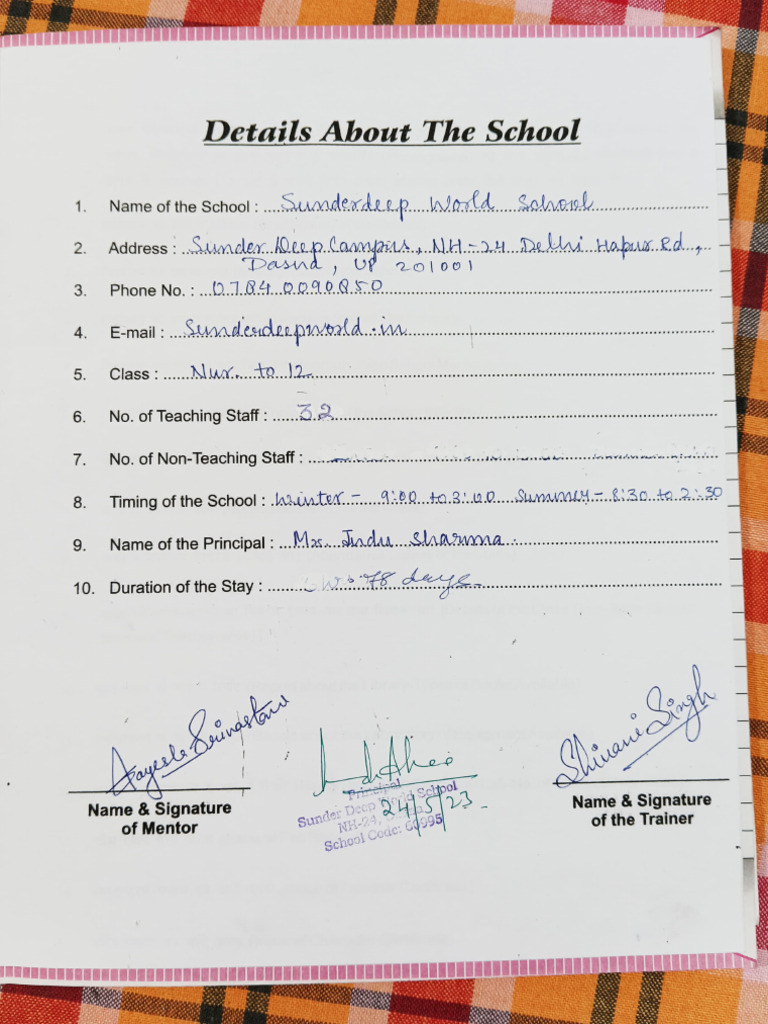 Details About The School
1. Name of the School : Sunderdeep World School
2. Address : Sunder Deep Campus, NH-24 Delhi Hapur Rd,
Dasna, UP 201001
3. Phone No. :
4. E-mail : Sunderdeepworld.in
5. Class : Nur. to 12
6. No. of Teaching Staff : 32
7. No. of Non-Teaching Staff :
8. Timing of the School : Winter - 9:00 to 3:00 Summer - 8:30 to 2:30
9. Name of the Principal : Indu Sharma
10. Duration of the Stay : 78 days
Srivastava Shivani Singh
Principal
Sunder Deep World School
24/5/23
NH-24,
School Code: 60995
Name & Signature
of Mentor
Name & Signature
of the Trainer